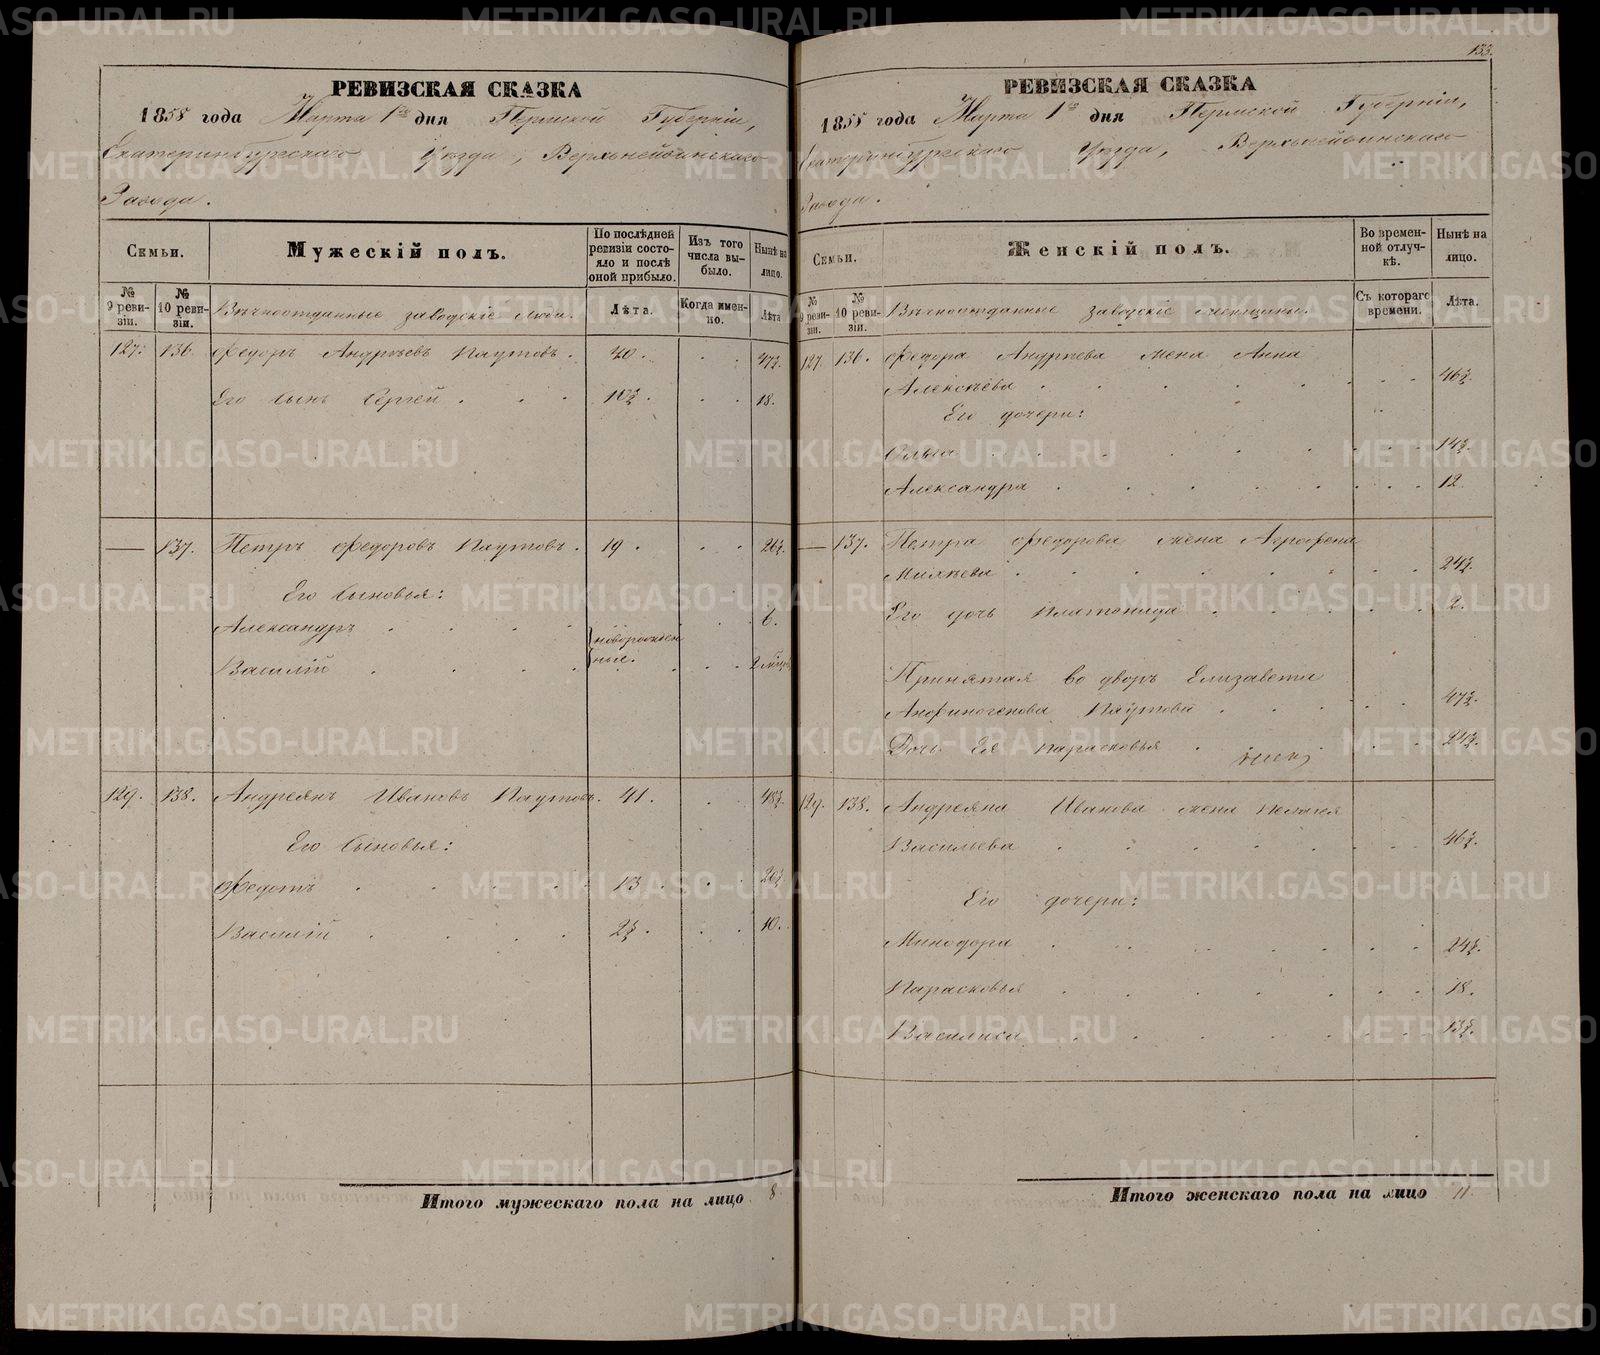 РЕВИЗСКАЯ СКАЗКА
1858 года Марта 1го дня Пермской Губерніи,
Екатеринбургскаго Уѣзда, Верхънейвинскаго
Завода.
Семьи.
Мужескій полъ.
По послѣдней ревизіи состояло и послѣ оной прибыло.
Изъ того числа выбыло.
Нынѣ на лицо.
№ 9 ревизіи.
№ 10 ревизіи.
Вѣчноотданные заводскіе люди.
Лѣта.
Когда именно.
Лѣта
127. 136. Федоръ Андреевъ Паутовъ. 40. 47½
Его сынъ Сергей 10½. 18.
— 137. Петръ Федоровъ Паутовъ. 19. 26½
Его сыновья:
Александръ 6.
новорожденные.
Василій
129. 138. Андреянъ Ивановъ Паутовъ. 41. 48½
Его сыновья:
Федотъ 13. 20½
Василій 2½. 10.
Итого мужескаго пола на лицо 8
133.
РЕВИЗСКАЯ СКАЗКА
1858 года Марта 1го дня Пермской Губерніи,
Екатеринбургскаго Уѣзда, Верхънейвинскаго
Завода.
Семьи.
Женскій полъ.
Во временной отлучкѣ.
Нынѣ на лицо.
№ 9 ревизіи.
№ 10 ревизіи.
Вѣчноотданные заводскіе женщины.
Съ котораго времени.
Лѣта.
127. 136. Федора Андреева жена Анна
Алексѣева 46½.
Его дочери:
Ольга 14½.
Александра 12.
— 137. Петра Федорова жена Агрофена
24½.
Его дочь Платонида 2.
Принятая во дворъ Елизавета
Анфиногенова Паутова 47½.
Дочь Ея Парасковья 24½.
129. 138. Андреяна Иванова жена Пелагея
Васильева 46½.
Его дочери:
Минодора 24½.
Парасковья 18.
Василиса 13½.
Итого женскаго пола на лицо 11.
METRIKI.GASO-URAL.RU